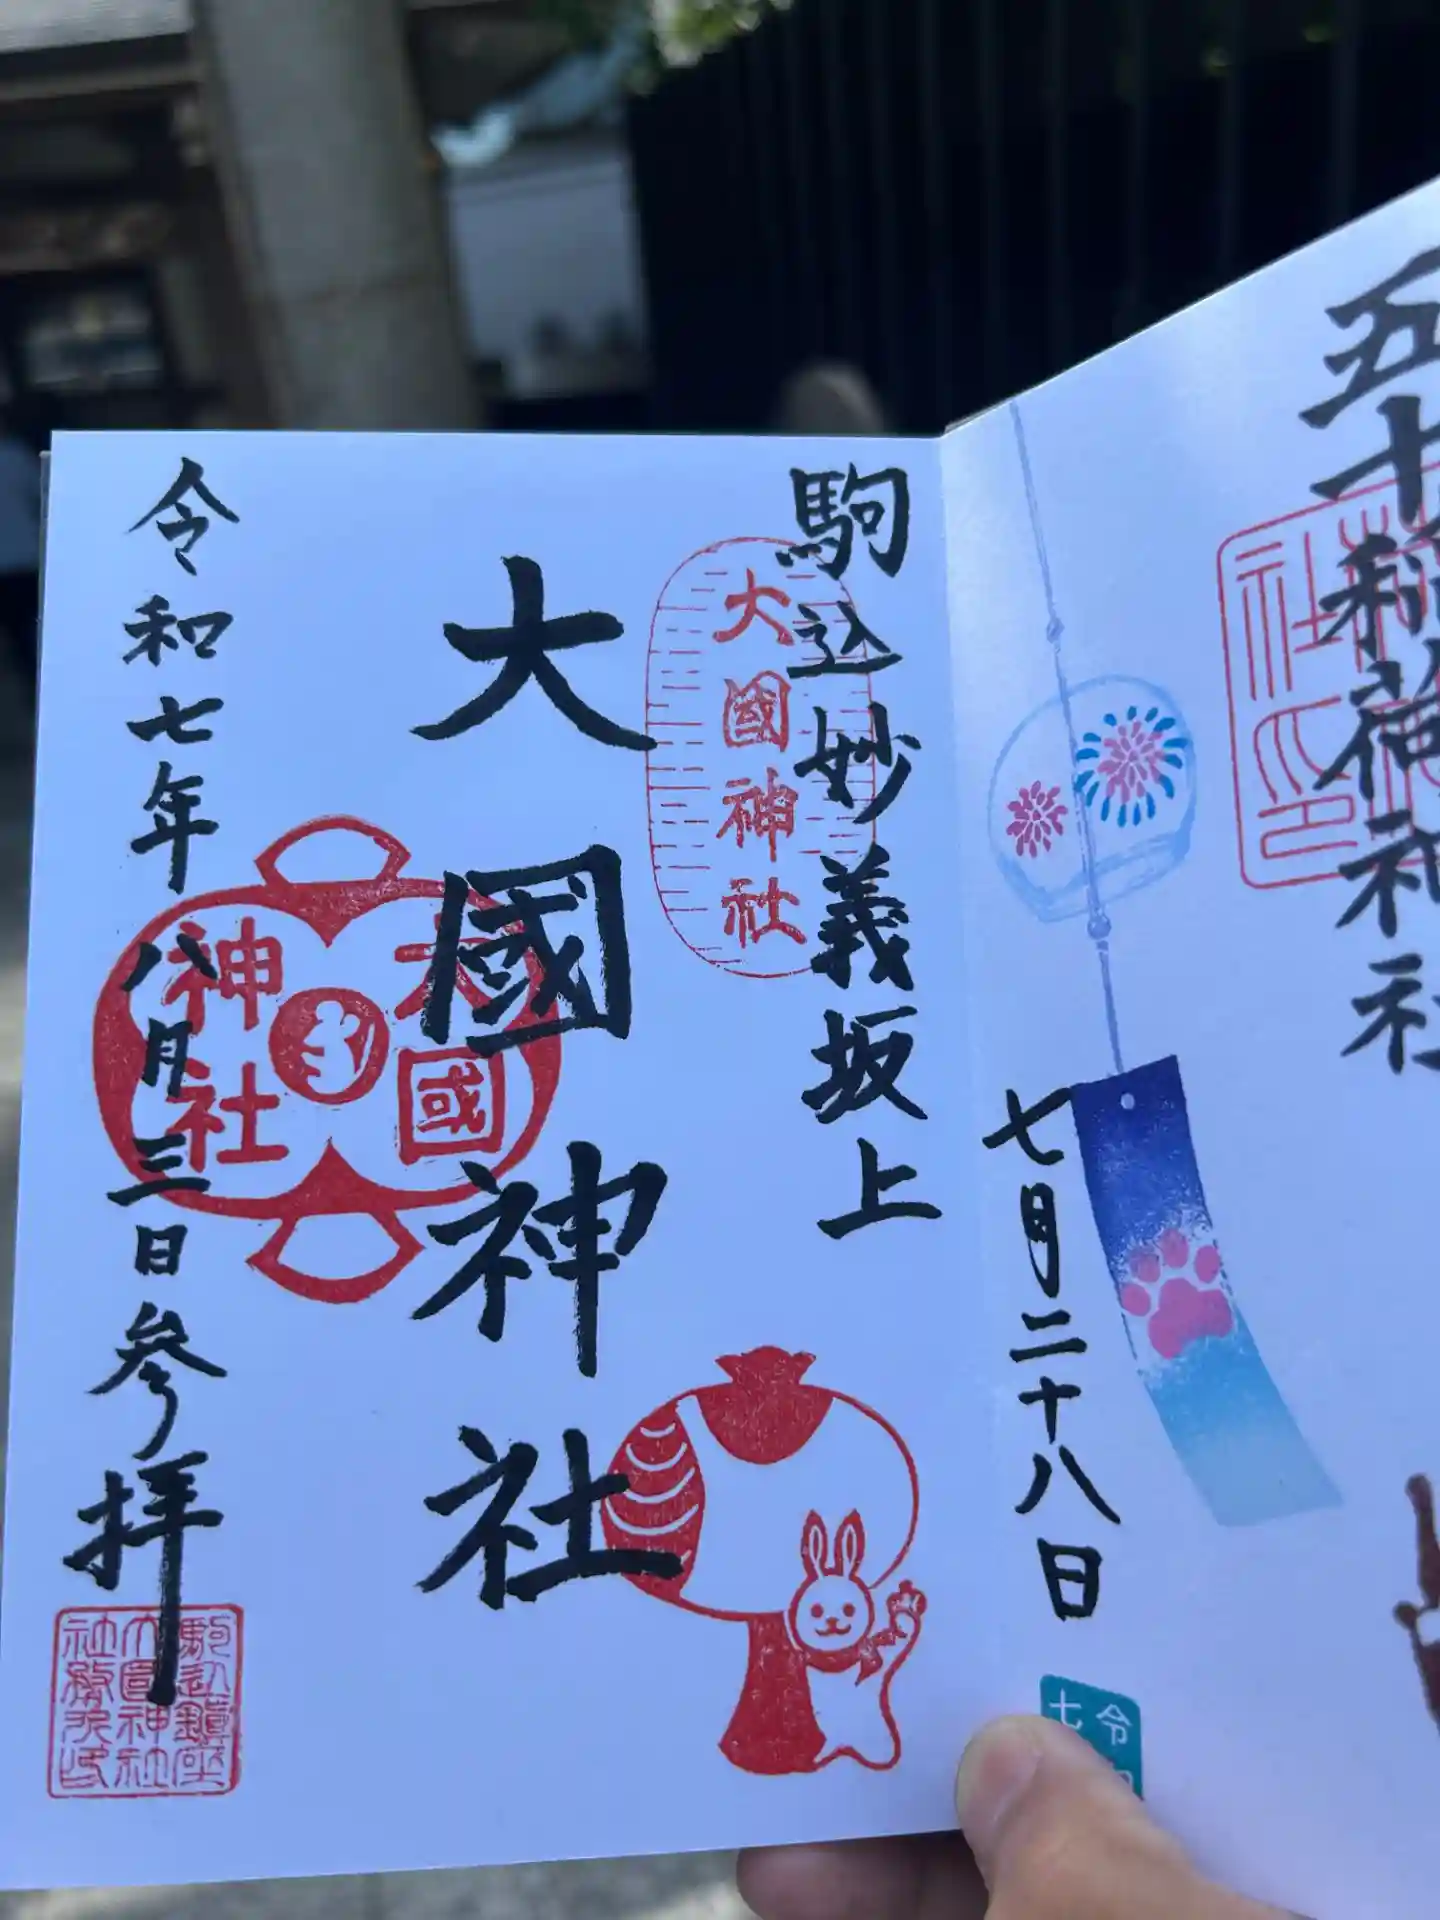 五十稲荷神社
七月二十八日
令
七
駒込妙義坂上
大國神社
大國神社
大國
神社
令和七年八月三日参拝
駒込鎮座
大国神社
社務所印